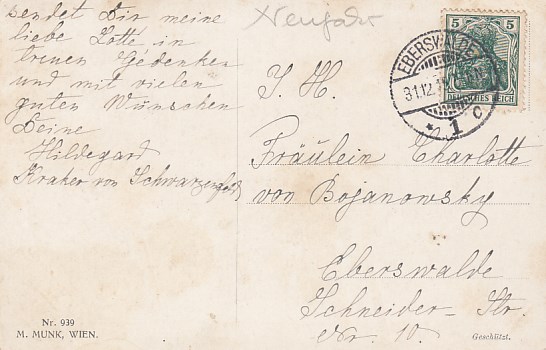 sendet Dir meine
liebe Lotte in
treuem Gedenken
und mit vielen
guten Wünschen
Deine
Hildegard
Kraker von Schwarzenfeld
Neujahr
5 5
DEUTSCHES REICH
EBERSWALDE
31.12.
* 1 c
I. H.
Fräulein Charlotte
von Bojanowsky
Eberswalde
Schneider-Str.
Nr. 10.
Nr. 939
M. MUNK, WIEN.
Geschützt.